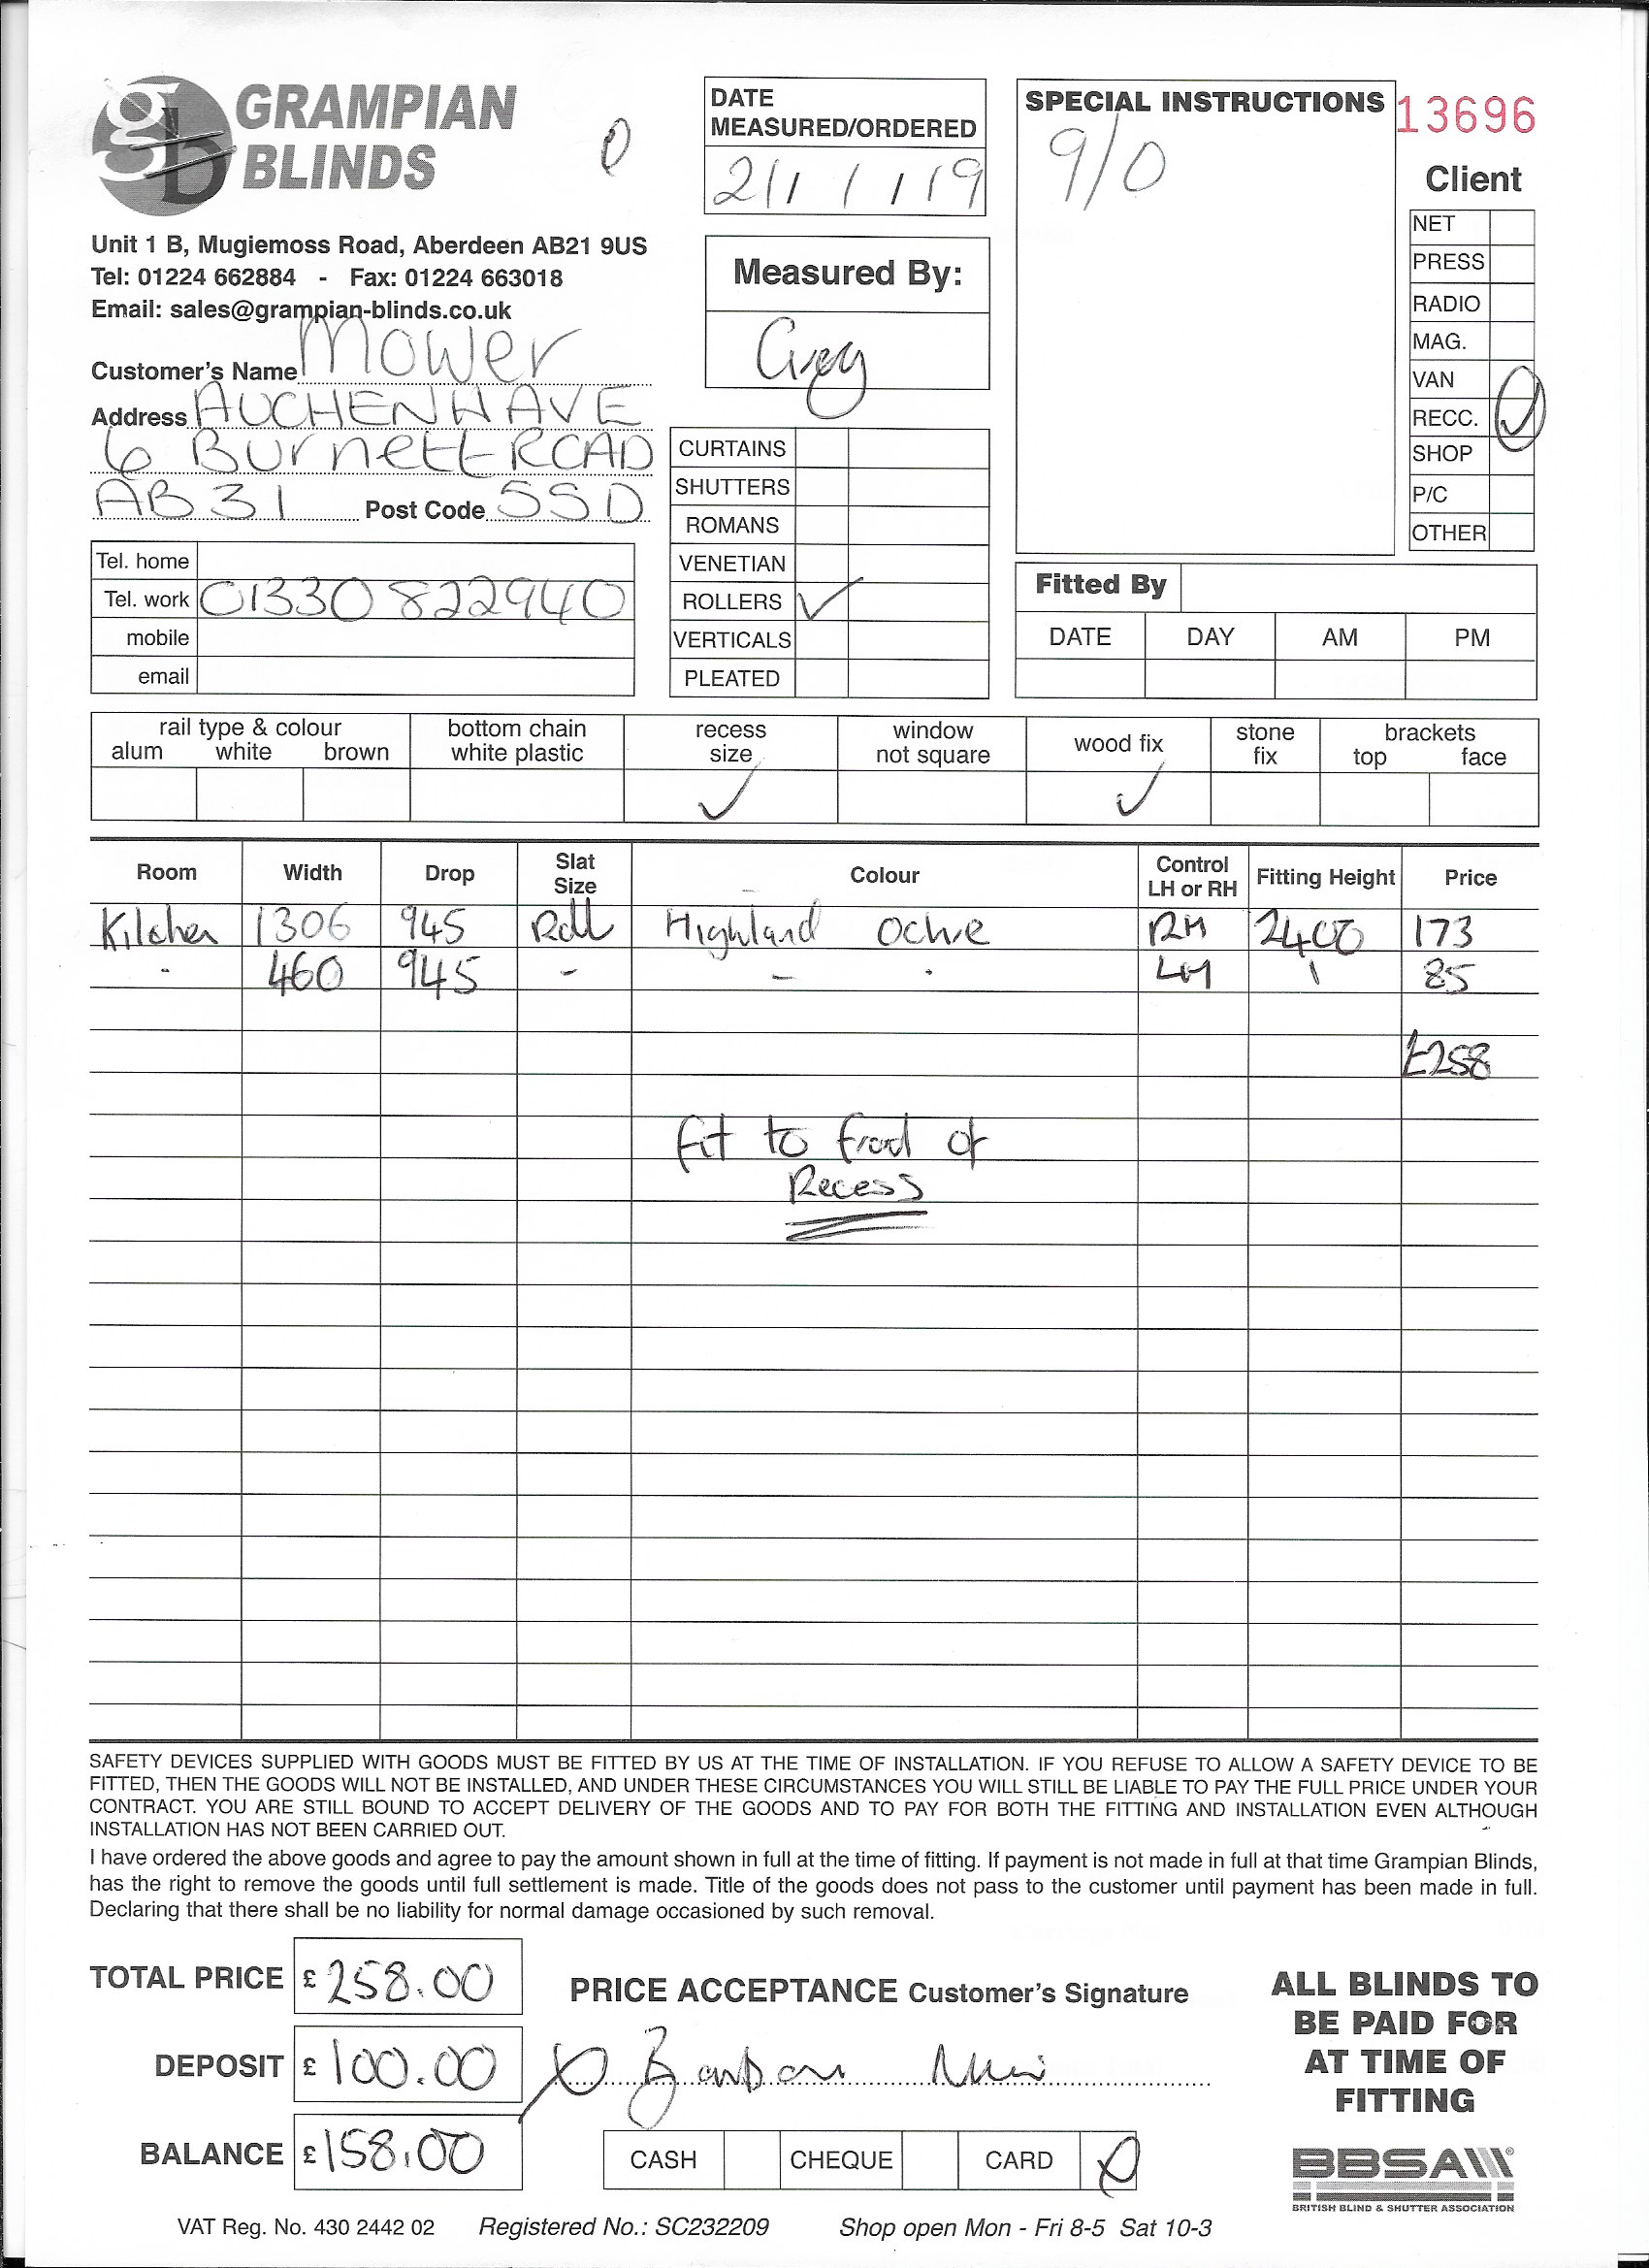 GRAMPIAN
BLINDS
Unit 1 B, Mugiemoss Road, Aberdeen AB21 9US
Tel: 01224 662884 - Fax: 01224 663018
Email: sales@grampian-blinds.co.uk
Customer's Name Mower
Address AUCHENHAVE
6 Burnett ROAD
AB31 Post Code 5SD
Tel. home
Tel. work 01330 822940
mobile
email
DATE
MEASURED/ORDERED
21/1/19
Measured By:
Greg
CURTAINS
SHUTTERS
ROMANS
VENETIAN
ROLLERS ✓
VERTICALS
PLEATED
SPECIAL INSTRUCTIONS
9/0
13696
Client
NET
PRESS
RADIO
MAG.
VAN
RECC. ✓
SHOP
P/C
OTHER
Fitted By
DATE DAY AM PM
rail type & colour bottom chain recess window wood fix stone brackets
alum white brown white plastic size not square fix top face
✓ ✓
Room Width Drop Slat Size Colour Control LH or RH Fitting Height Price
Kitchen 1306 945 Roll Highland Ochre RH 2400 173
460 945 - - LH 85
£258
Fit to front of
Recess
SAFETY DEVICES SUPPLIED WITH GOODS MUST BE FITTED BY US AT THE TIME OF INSTALLATION. IF YOU REFUSE TO ALLOW A SAFETY DEVICE TO BE
FITTED, THEN THE GOODS WILL NOT BE INSTALLED, AND UNDER THESE CIRCUMSTANCES YOU WILL STILL BE LIABLE TO PAY THE FULL PRICE UNDER YOUR
CONTRACT. YOU ARE STILL BOUND TO ACCEPT DELIVERY OF THE GOODS AND TO PAY FOR BOTH THE FITTING AND INSTALLATION EVEN ALTHOUGH
INSTALLATION HAS NOT BEEN CARRIED OUT.
I have ordered the above goods and agree to pay the amount shown in full at the time of fitting. If payment is not made in full at that time Grampian Blinds,
has the right to remove the goods until full settlement is made. Title of the goods does not pass to the customer until payment has been made in full.
Declaring that there shall be no liability for normal damage occasioned by such removal.
TOTAL PRICE £ 258.00
DEPOSIT £ 100.00
BALANCE £ 158.00
PRICE ACCEPTANCE Customer's Signature
CASH CHEQUE CARD
ALL BLINDS TO
BE PAID FOR
AT TIME OF
FITTING
BBSA
BRITISH BLIND & SHUTTER ASSOCIATION
VAT Reg. No. 430 2442 02 Registered No.: SC232209 Shop open Mon - Fri 8-5 Sat 10-3